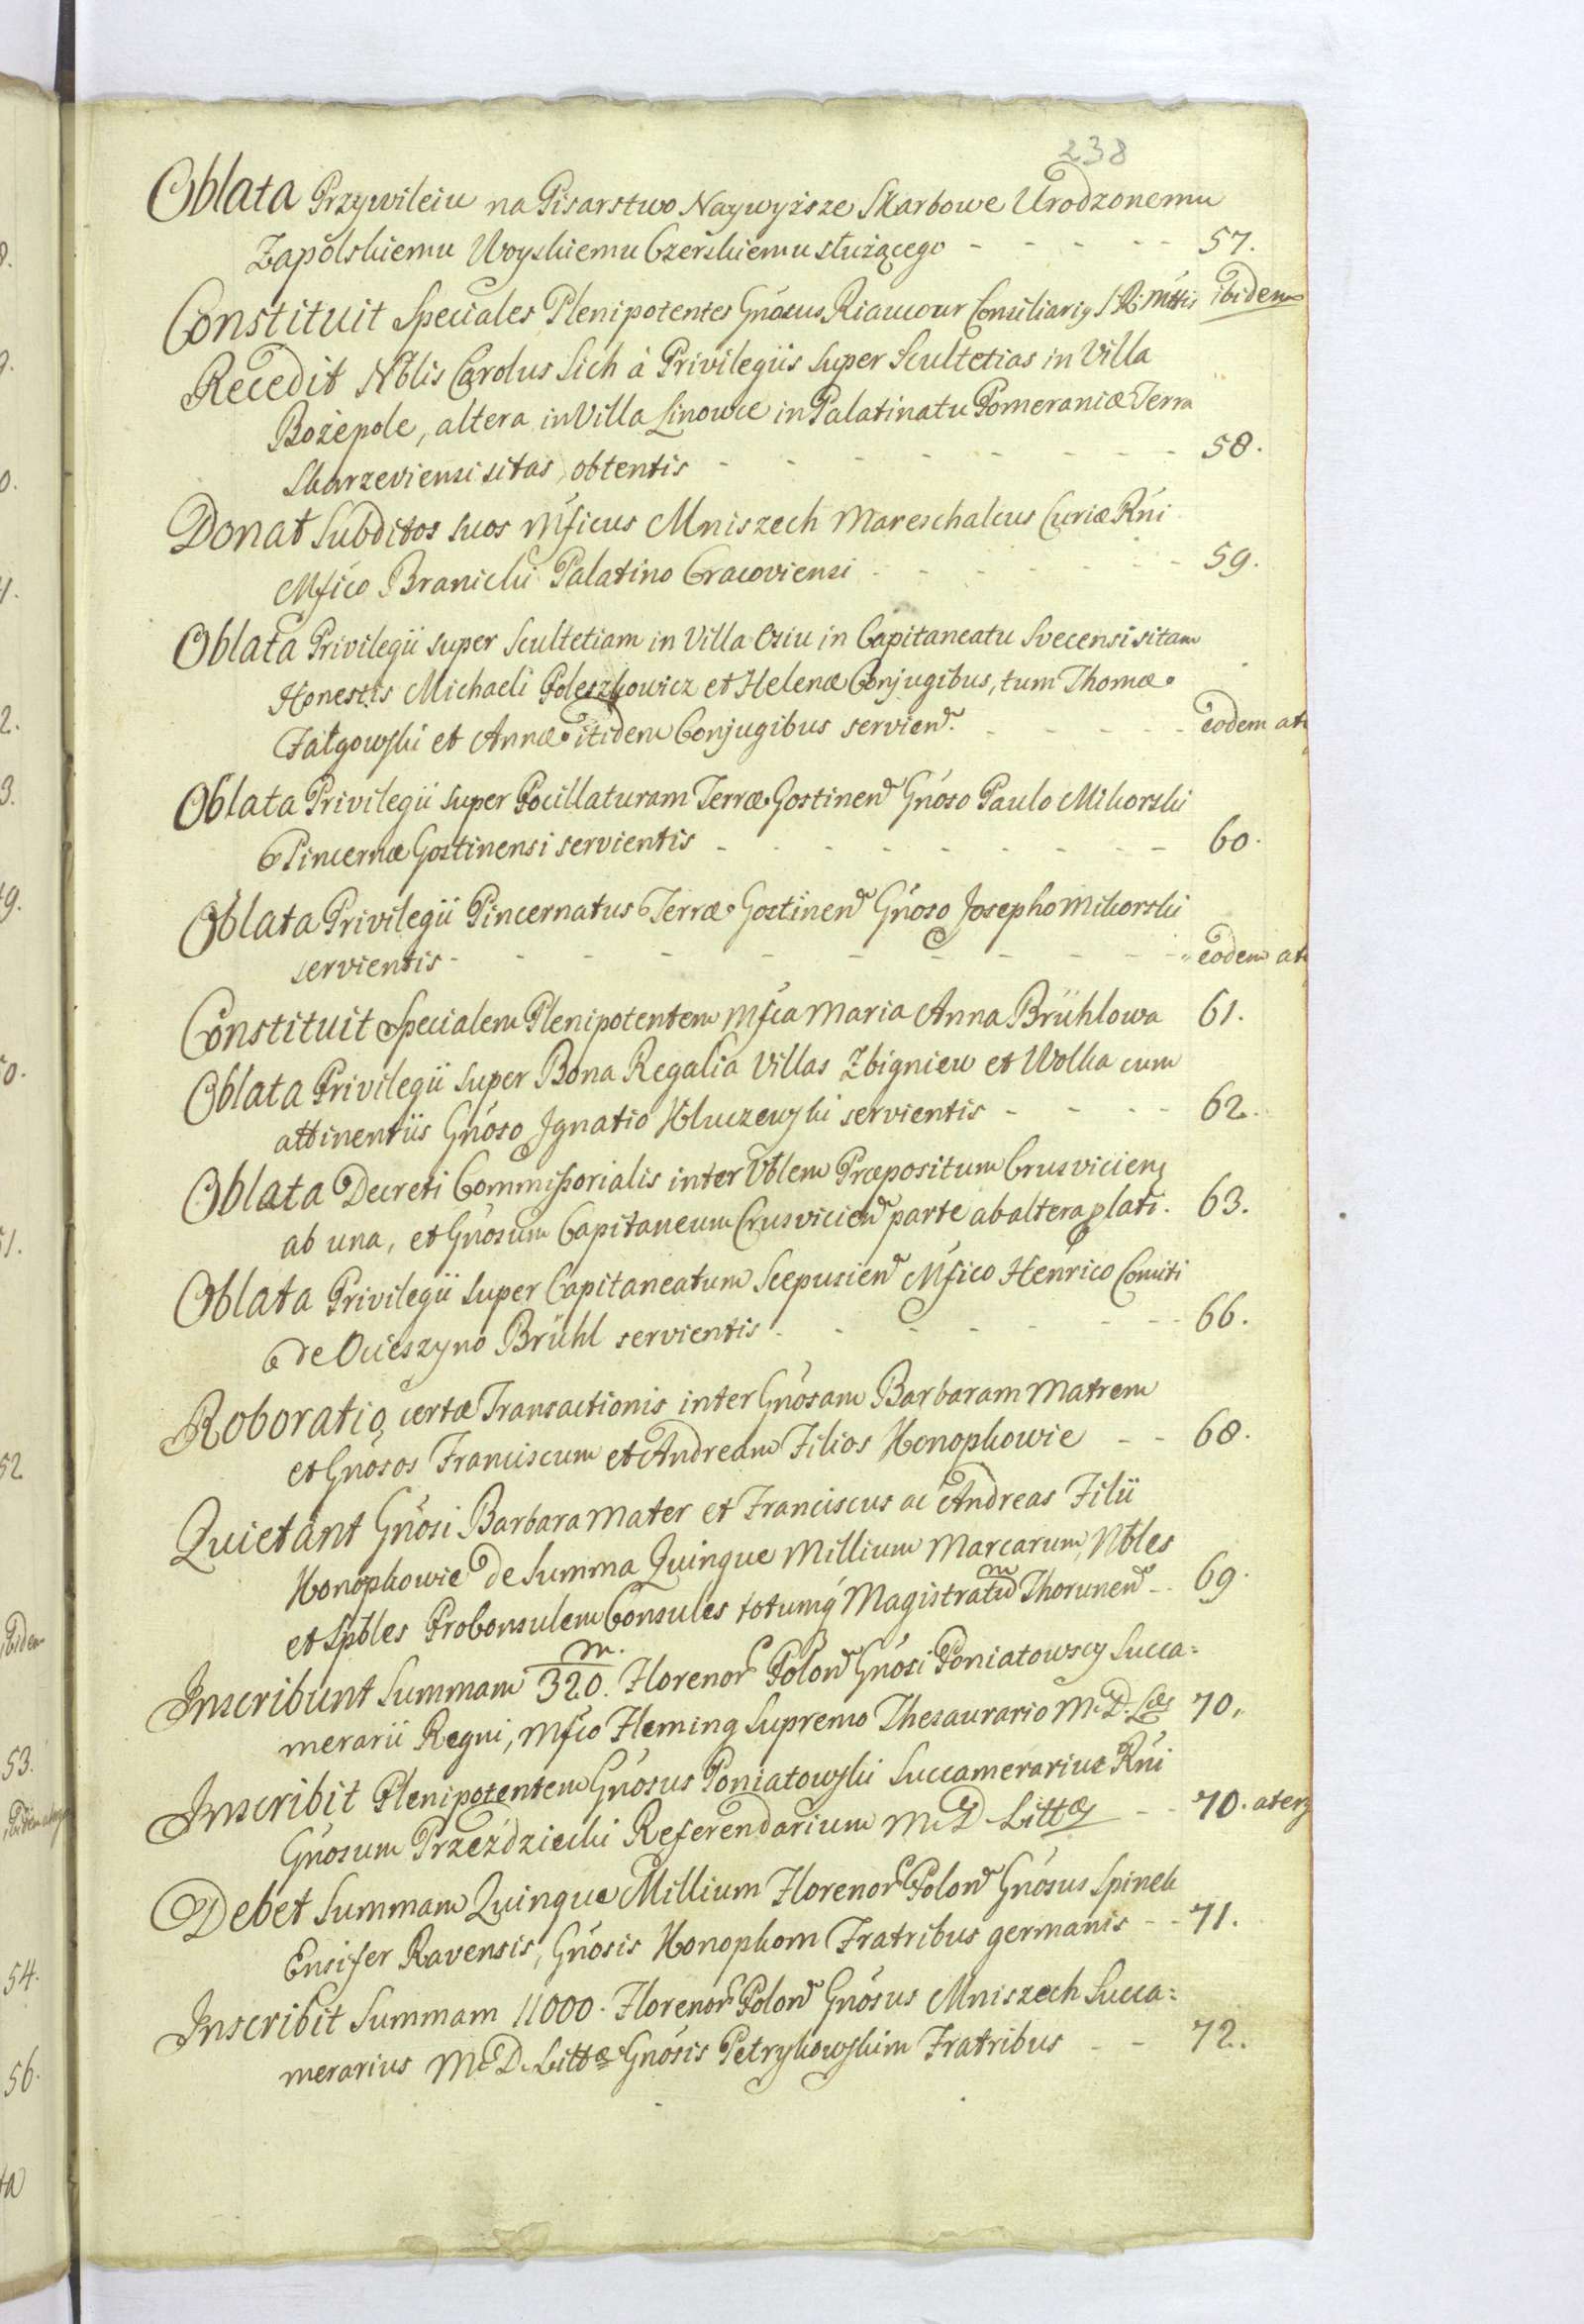 238
Oblata Przywileiu na Pisarstwo Naywyższe Skarbowe Urodzonemu
Zapolskiemu Woyskiemu Czerskiemu służącego - - - - - 57.
Constituit Speciales Plenipotentes Gnosus Riaucour Consiliarig S R Mttis ibidem
Recedit Nblis Carolus Sich à Privilegiis super Scultetias in Villa
Bożepole, altera in Villa Linowce in Palatinatu Pomeraniæ Terra
Skarzeviensi sitas obtentis - - - - - - - - 58.
Donat Subditos suos Mficus Mniszech Mareschalcus Curiæ Rni
Mfico Branicki Palatino Cracoviensi - - - - - - 59.
Oblata Privilegii super Scultetiam in Villa Osiu in Capitaneatu Svecensi sitam
Honestis Michaeli Poleszkowicz et Helenæ Conjugibus, tum Thomæ
Fałgowski et Annæ itidem Conjugibus serviend. - - - - eodem at
Oblata Privilegii super Pocillaturam Terræ Gostinen Gnoso Paulo Mikorski
Pincernæ Gostinensi servientis - - - - - - - - 60.
Oblata Privilegii Pincernatus Terræ Gostinen Gnoso Josepho Mikorski
servientis - - - - - - - - - eodem at
Constituit Specialem Plenipotentem Mfica Maria Anna Brühlowa 61.
Oblata Privilegii super Bona Regalia Villas Zbigniew et Wolka cum
attinentiis Gnoso Ignatio Kluczewski servientis - - - - 62.
Oblata Decreti Commissorialis inter Vblem Præpositum Crusvicien
ab una, et Gnosum Capitaneum Crusvicien parte ab altera plati. 63.
Oblata Privilegii super Capitaneatum Scepusien Mfico Henrico Comiti
de Ocieszyno Brühl servientis - - - - - - - 66.
Roboratio certæ Transactionis inter Gnosam Barbaram Matrem
et Gnosos Franciscum et Andream Filios Konopkowie - - 68.
Quietant Gnosi Barbara Mater et Franciscus ac Andreas Filii
Konopkowie de Summa Quinque Millium Marcarum, Nbles
et Spbles Proconsulem Consules totumq Magistratum Thorunen - 69.
Inscribunt Summam 320. m. Florenor Polon Gnosi Poniatowscy Succa=
merarii Regni, Mfico Fleming Supremo Thesaurario M. D. Læ 70.
Inscribit Plenipotentem Gnosus Poniatowski Succamerarius Rni
Gnosum Przezdziecki Referendarium M. D. Littæ - - 70. aterg
Debet Summam Quinque Millium Florenor Polon Gnosus Spinek
Ensifer Ravensis, Gnosis Konopkom Fratribus germanis - - 71.
Inscribit Summam 11000. Florenor Polon Gnosus Mniszech Succa=
merarius M. D. Littæ Gnosis Petrykowskim Fratribus - - 72.